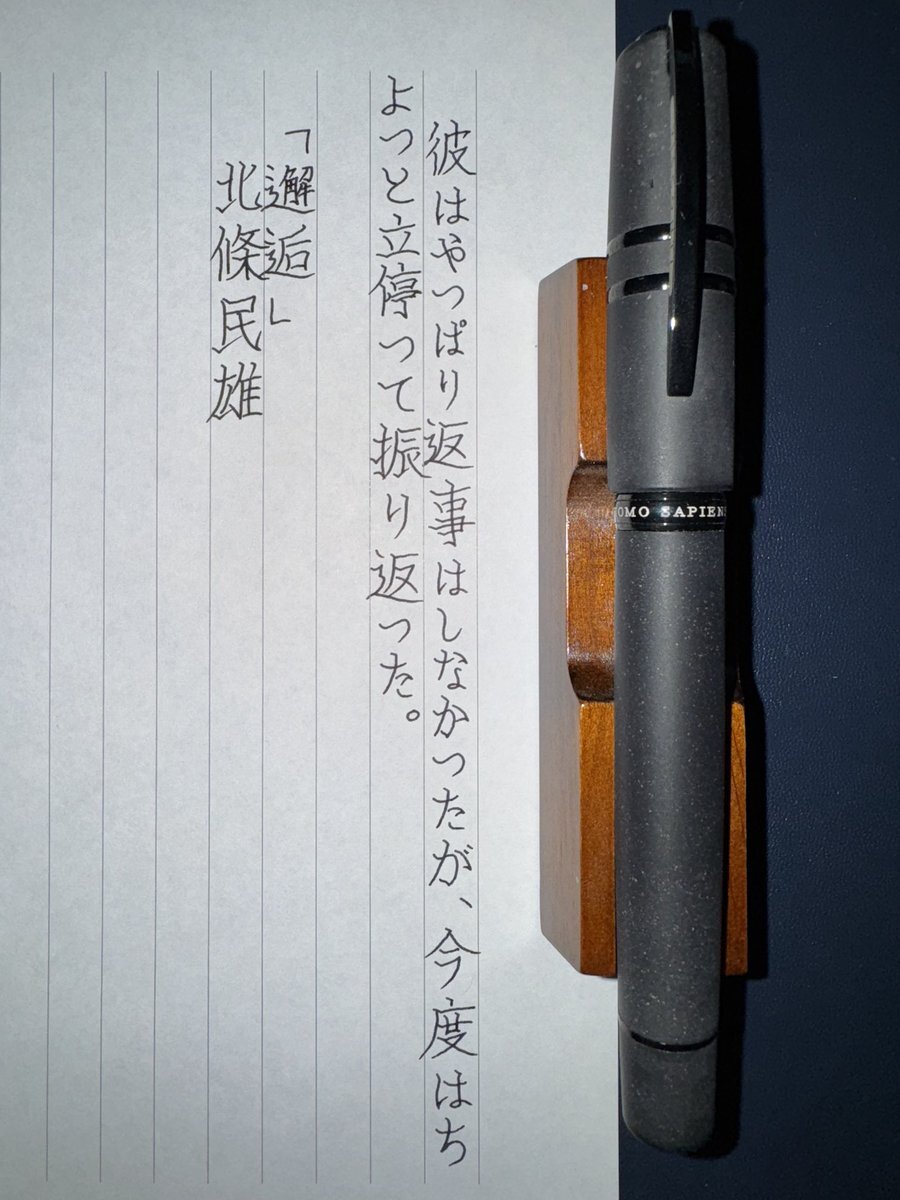 彼はやっぱり返事はしなかったが、今度はち
ょっと立停って振り返った。
「邂逅」
北條民雄
OMO SAPIENS